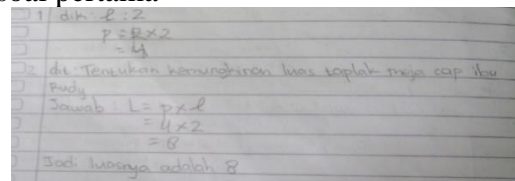 soal pertama
1 dik: l : 2
p = 2 x 2
= 4
2 dit: Tentukan kemungkinan luas taplak meja cap ibu
Rudy
Jawab : L = p x l
= 4 x 2
= 8
Jadi luasnya adalah 8